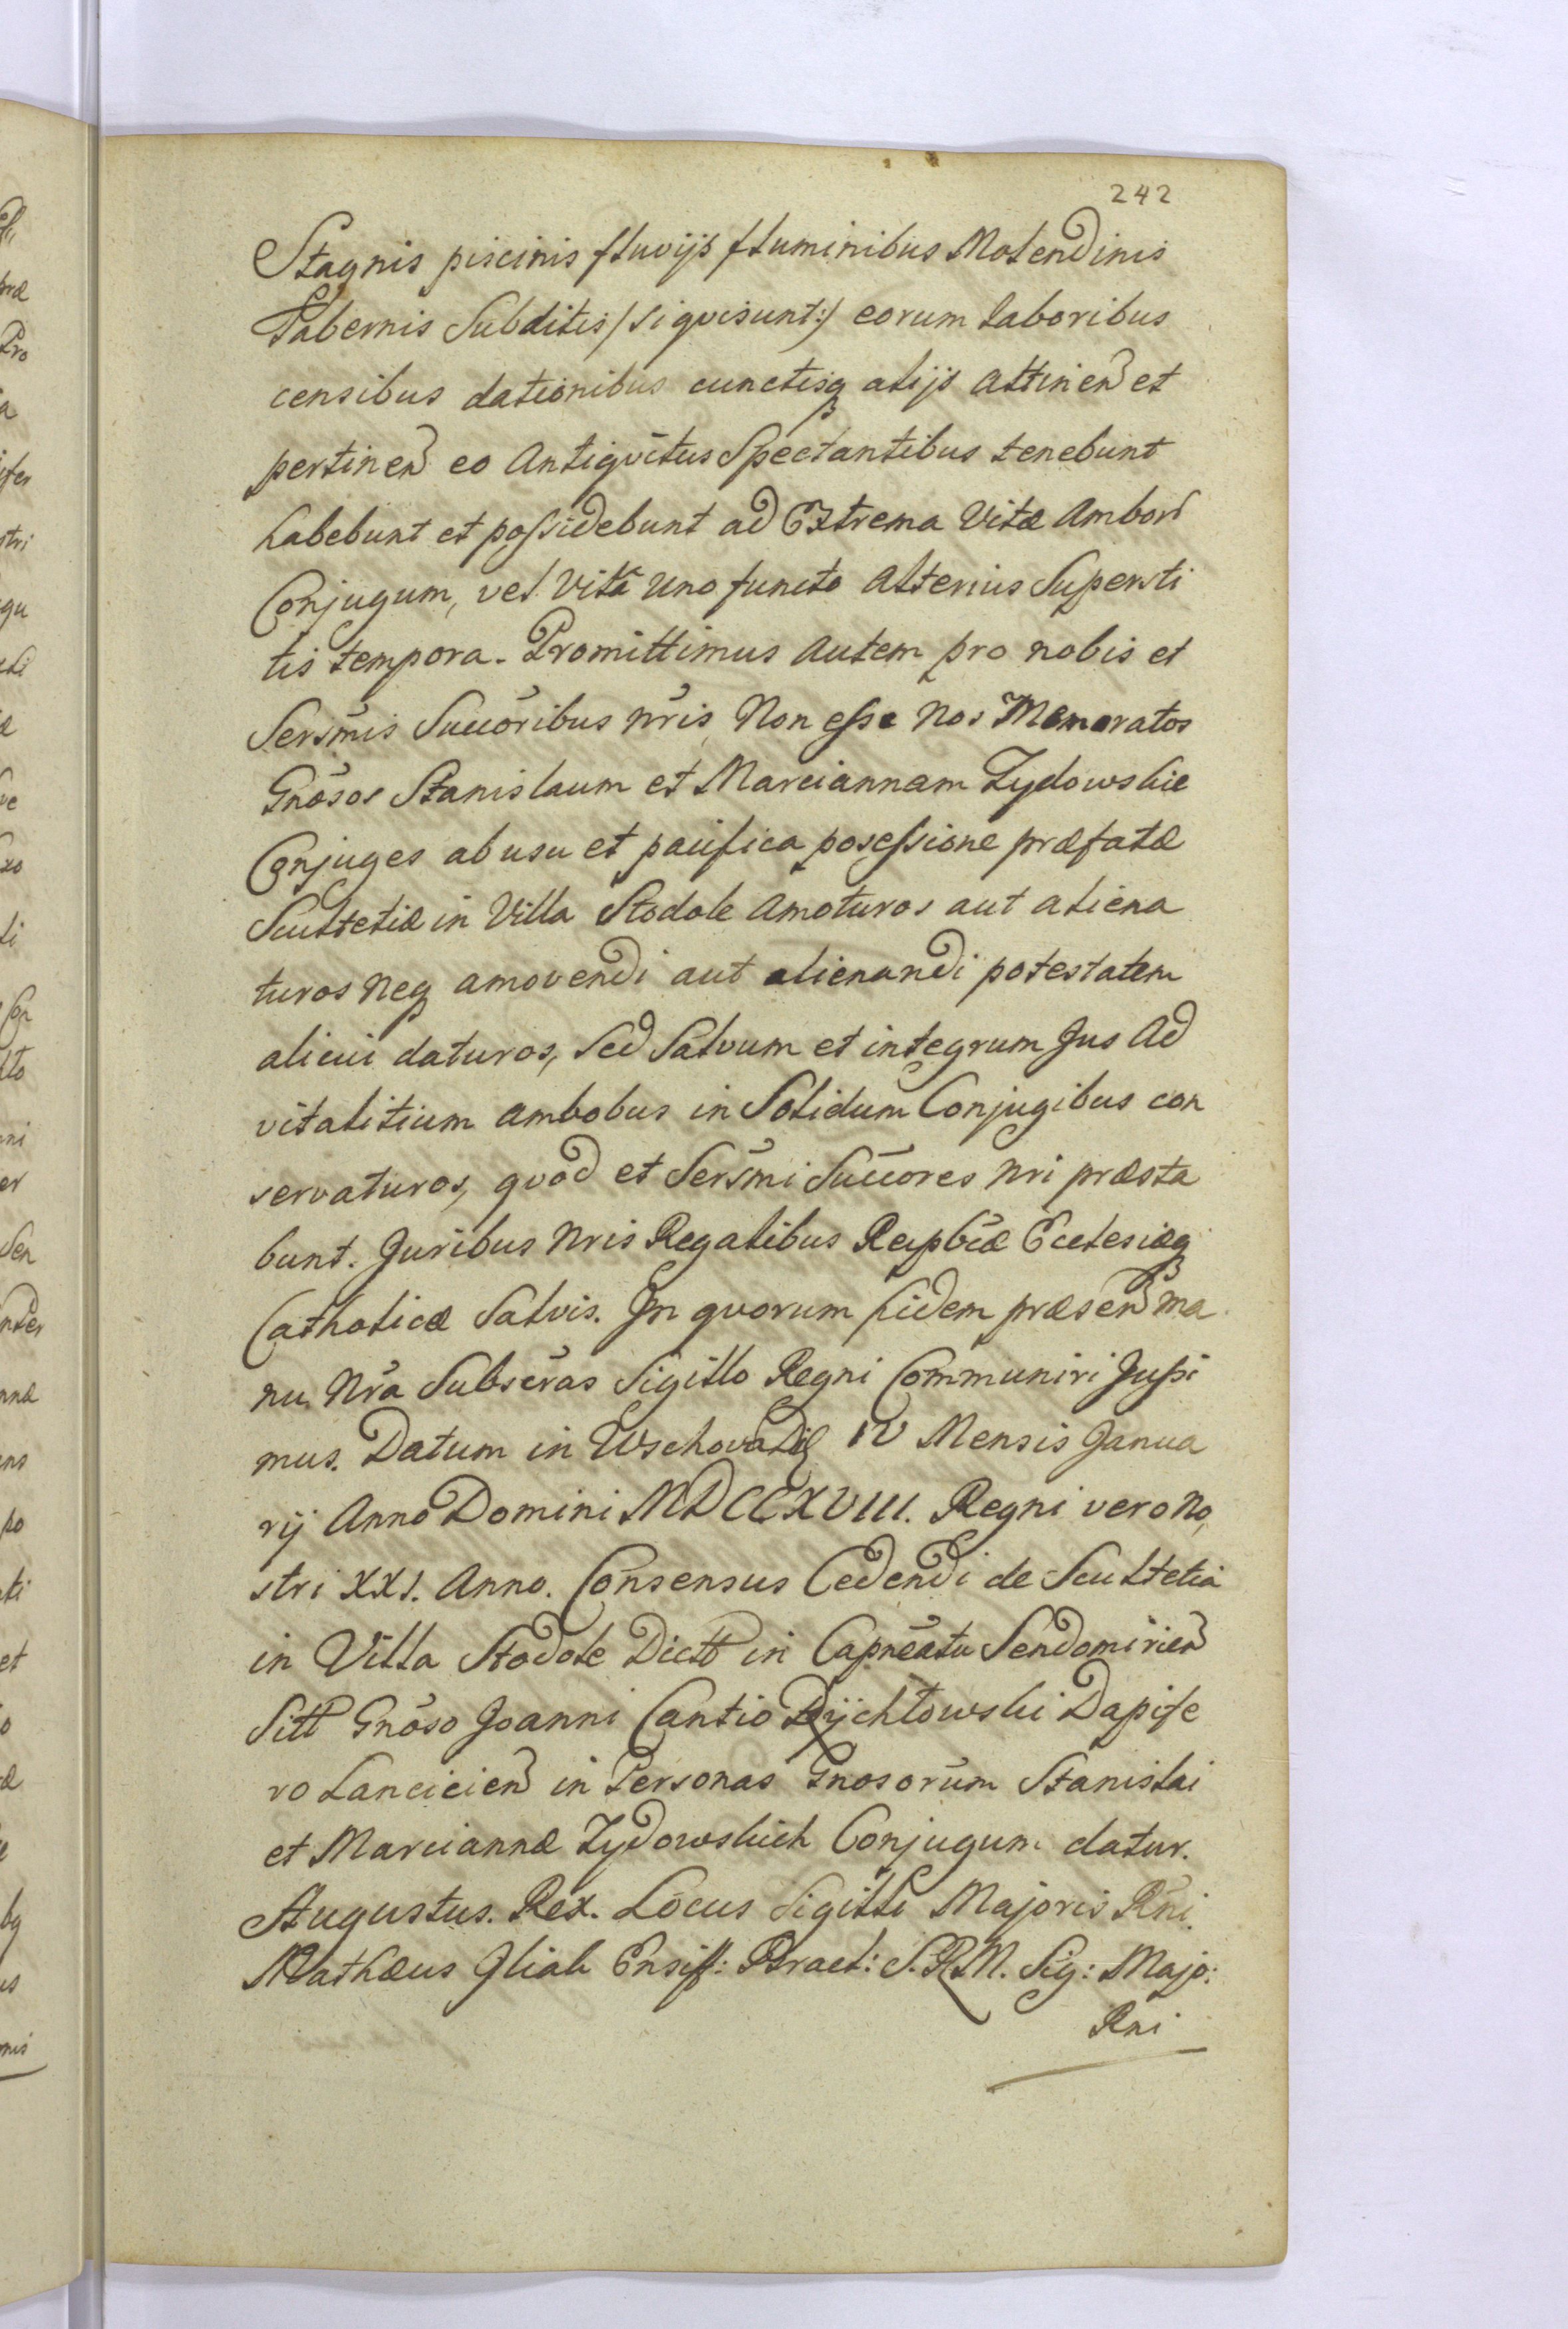 242
Stagnis piscinis fluvijs fluminibus Molendinis
Tabernis Subditis /si qvi sunt:/ eorum laboribus
censibus dationibus cunctisq alijs attinen et
pertinen eo Antiqvitus Spectantibus tenebunt
habebunt et possidebunt ad Extrema Vitæ Ambor
Conjugum, vel Vitâ uno functo Alterius Supersti
tis tempora. Promittimus Autem pro nobis et
Sersm̃is Succõribus nr̃is Non esse Nos Memoratos
Gnõsos Stanislaum et Marciannam Zydowskie
Conjuges ab usu et pacifica posessione præfatæ
Scultetiæ in Villa Stodole Amoturos aut aliena
turos Neq amovendi aut alienandi potestatem
alicui daturos, Sed Salvum et integrum Jus Ad
vitalitium Ambobus in Solidum Conjugibus con
servaturos, qvod et Sersm̃i Succores Nri præsta
bunt. Juribus Nris Regalibus Reipbĉæ Ecclesiæq
Catholicæ Salvis. In qvorum fidem præsen ma
nu Nr̃a Subscr̃as Sigillo Regni Communiri Jussi
mus. Datum in Wschova Die IV Mensis Janua
rij Anno Domini MDCCXVIII. Regni vero No,
stri XXI. Anno. Consensus Cedendi de Scultetia
in Villa Stodole Dictt in Capnẽatu Sendomirien
Sitt Gnõso Joanni Cantio Rychłowski Dapife
ro Lancicien in Personas Gnosorũm Stanislai
et Marciannæ Zydowskich Conjugum datur.
Augustus. Rex. Locus Sigilli Majoris Rñi.
Mathæus Gliak Ensif: Brael: S.R.M. Sig: Majo:
Rni